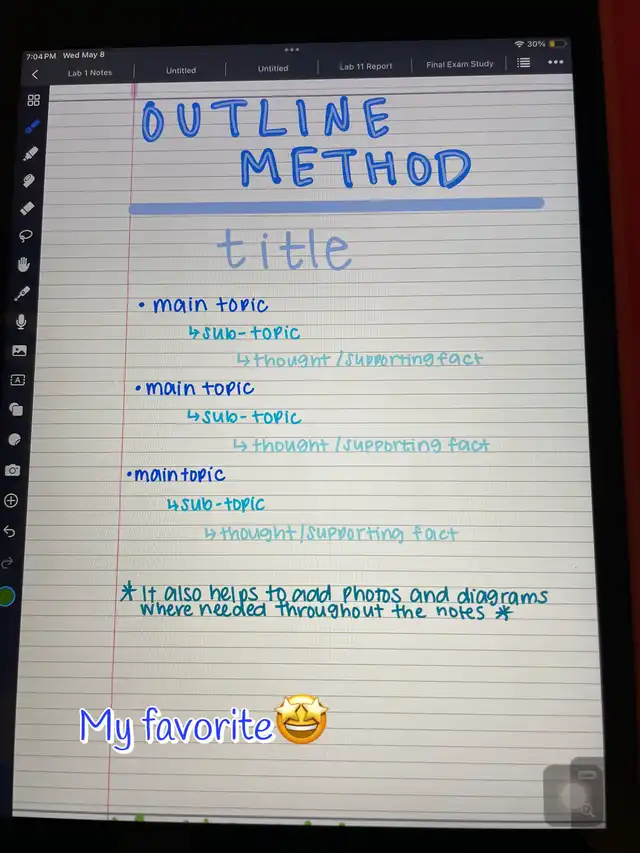 7:04 PM Wed May 8
30%
Lab 1 Notes
Untitled
Untitled
Lab 11 Report
Final Exam Study
OUTLINE
METHOD
title
• main topic
↳ sub-topic
↳ thought/supporting fact
• main topic
↳ sub-topic
↳ thought/supporting fact
• main topic
↳ sub-topic
↳ thought/supporting fact
* It also helps to add photos and diagrams
where needed throughout the notes *
My favorite🤩